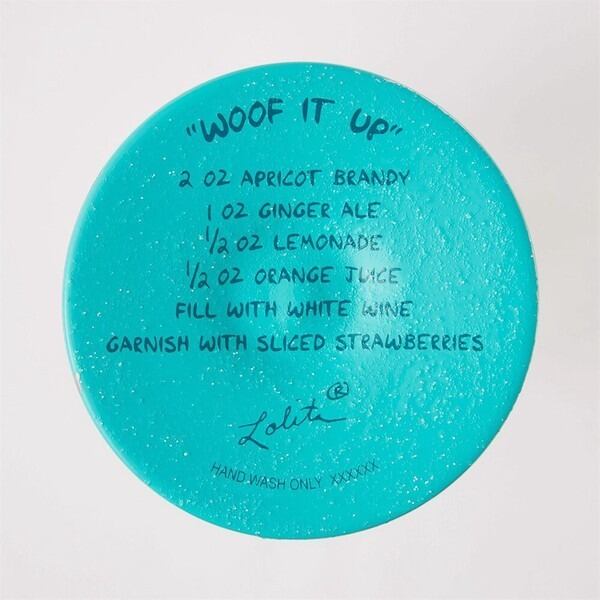 "WOOF IT UP"
2 OZ APRICOT BRANDY
1 OZ GINGER ALE
1/2 OZ LEMONADE
1/2 OZ ORANGE JUICE
FILL WITH WHITE WINE
GARNISH WITH SLICED STRAWBERRIES
Lolita®
HAND WASH ONLY XXXXXX